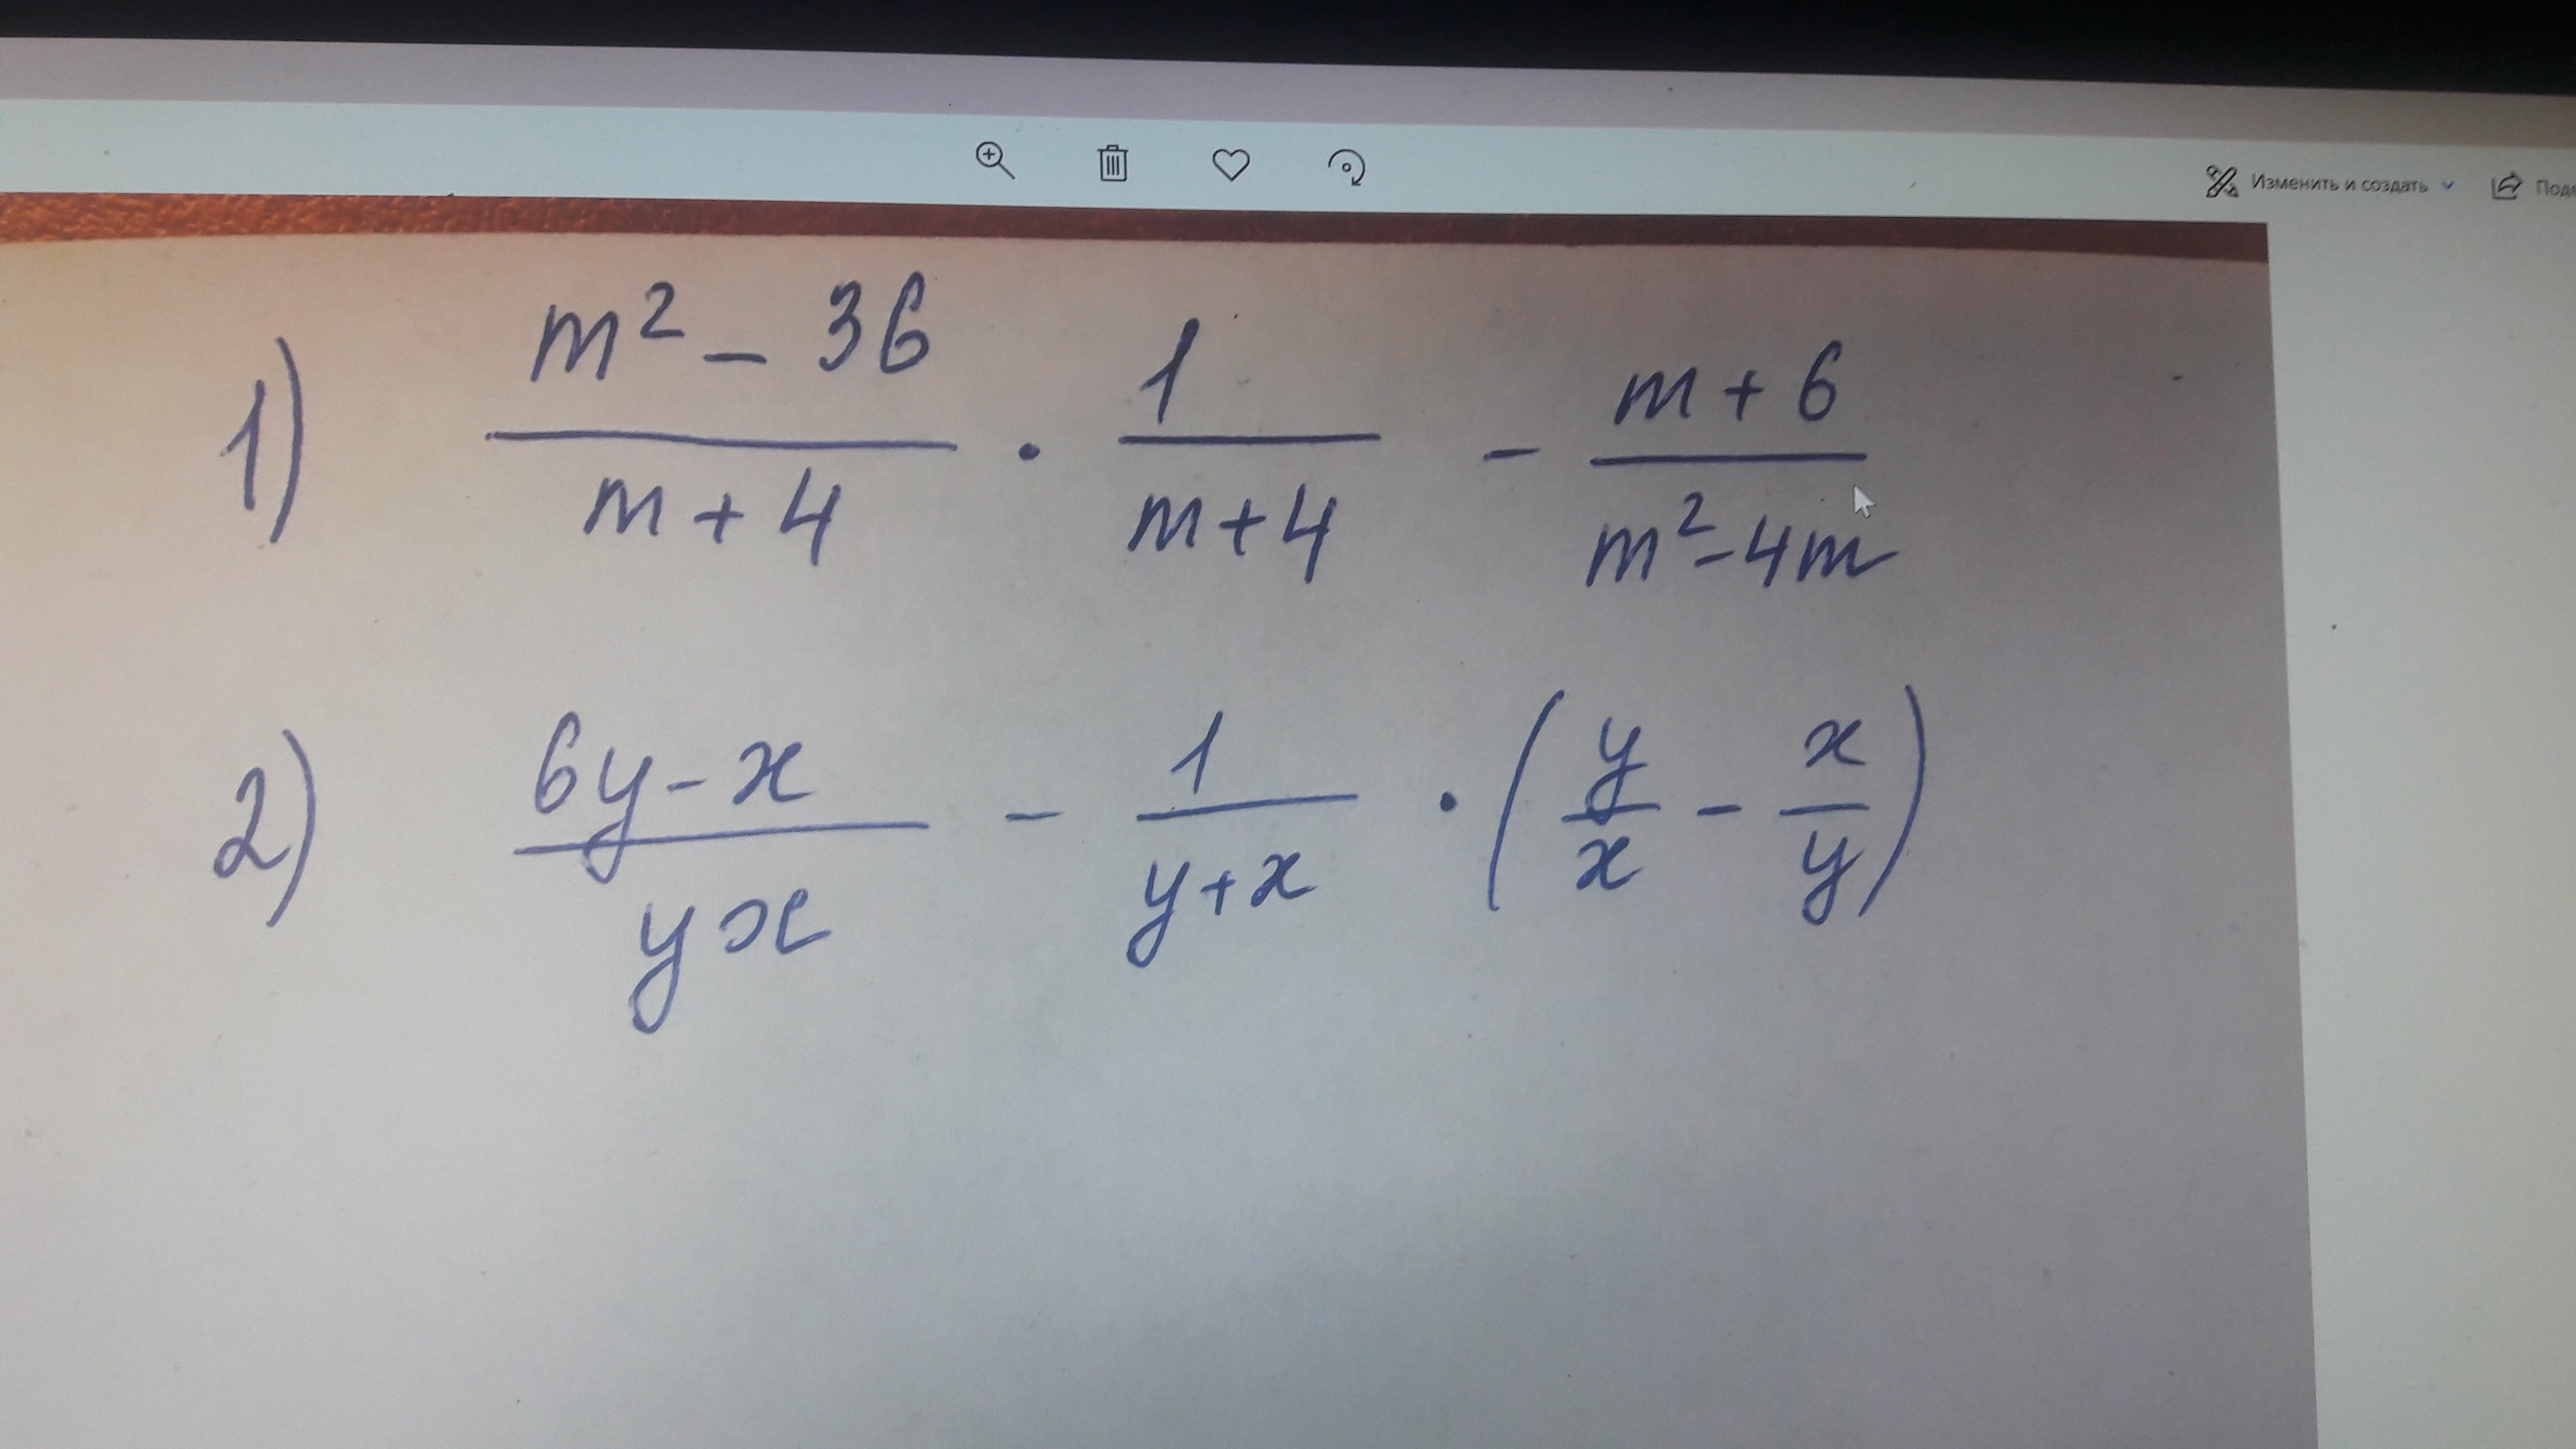 Изменить и создать
1) \frac{m^2 - 36}{m + 4} · \frac{1}{m + 4} - \frac{m + 6}{m^2 - 4m}
2) \frac{6y - x}{yx} - \frac{1}{y + x} · (\frac{y}{x} - \frac{x}{y})